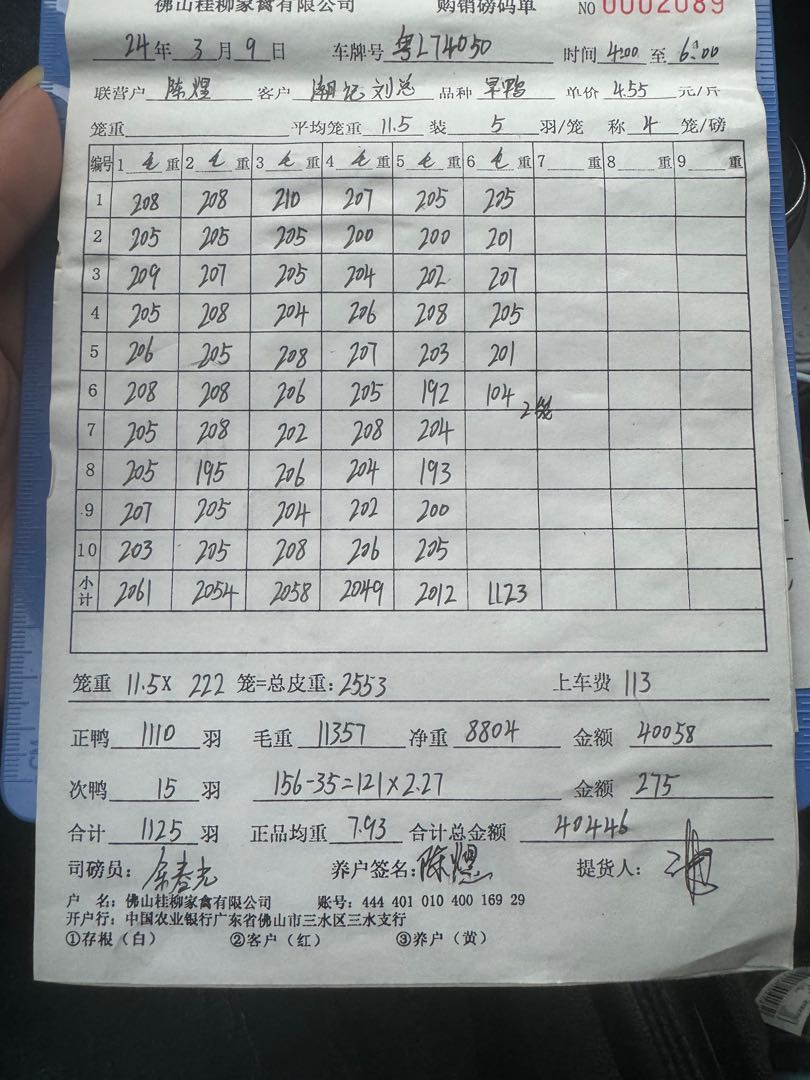 佛山桂柳家禽有限公司 购销磅码单 NO 0002089
24年 3月 9日 车牌号 粤L74050 时间 4:00 至 6:00
联营户 陈煜 客户 潮记刘总 品种 旱鸭 单价 4.55 元/斤
笼重 平均笼重 11.5 装 5 羽/笼 称 4 笼/磅
编号 1 毛 重 2 毛 重 3 毛 重 4 毛 重 5 毛 重 6 毛 重 7 重 8 重 9 重
1 208 208 210 207 205 205
2 205 205 205 200 200 201
3 209 207 205 204 202 207
4 205 208 204 206 208 205
5 206 205 208 207 203 201
6 208 208 206 205 192 104 2笼
7 205 208 202 208 204
8 205 195 206 204 193
9 207 205 204 202 200
10 203 205 208 206 205
小计 2061 2054 2058 2049 2012 1123
笼重 11.5X 222 笼=总皮重:2553 上车费 113
正鸭 1110 羽 毛重 11357 净重 8804 金额 40058
次鸭 15 羽 156-35=121×2.27 金额 275
合计 1125 羽 正品均重 7.93 合计总金额 40446
司磅员: 养户签名: 陈煜 提货人:
户 名: 佛山桂柳家禽有限公司 账号: 444 401 010 400 169 29
开户行: 中国农业银行广东省佛山市三水区三水支行
①存根（白） ②客户（红） ③养户（黄）